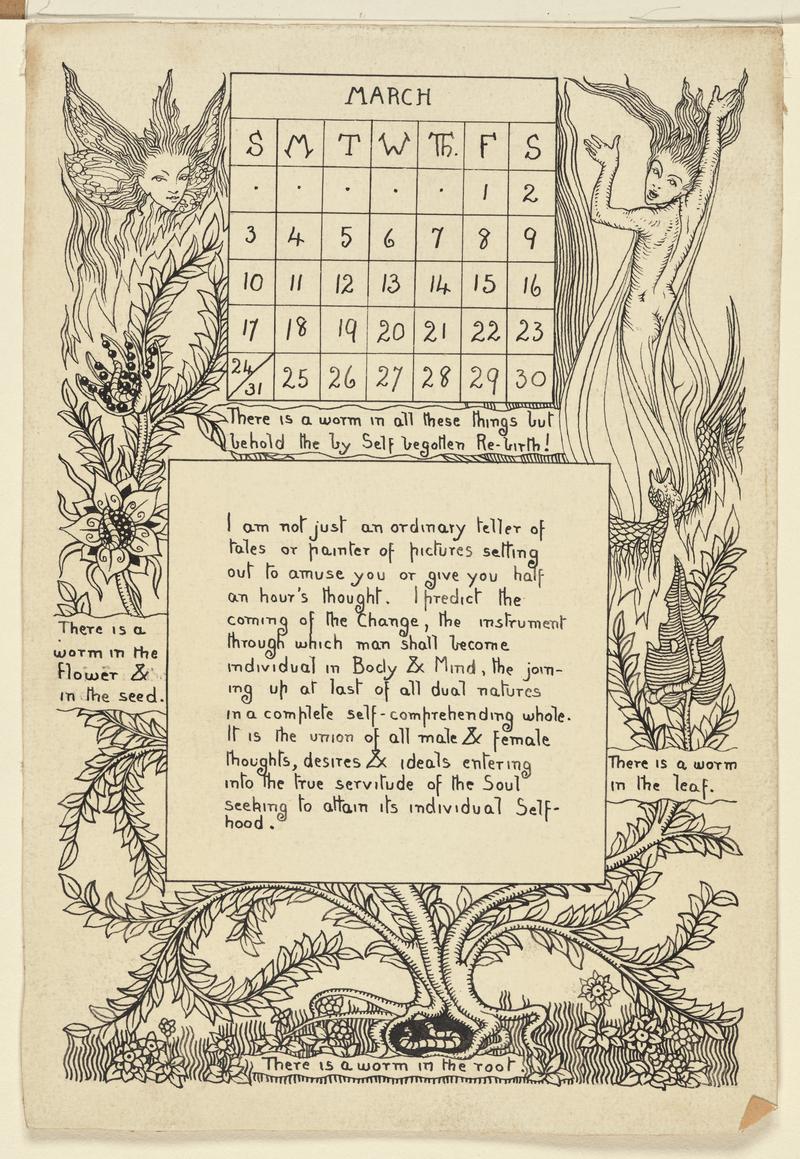 MARCH
S M T W Th. F S
. . . . . 1 2
3 4 5 6 7 8 9
10 11 12 13 14 15 16
17 18 19 20 21 22 23
24/31 25 26 27 28 29 30
There is a worm in all these things but
behold the by Self begotten Re-birth!
I am not just an ordinary teller of
tales or painter of pictures setting
out to amuse you or give you half
an hour's thought. I predict the
coming of the Change, the instrument
through which man shall become
individual in Body & Mind, the join-
ing up at last of all dual natures
in a complete self-comprehending whole.
It is the union of all male & female
thoughts, desires & ideals entering
into the true servitude of the Soul
seeking to attain its individual Self-
hood.
There is a
worm in the
flower &
in the seed.
There is a worm
in the leaf.
There is a worm in the root.